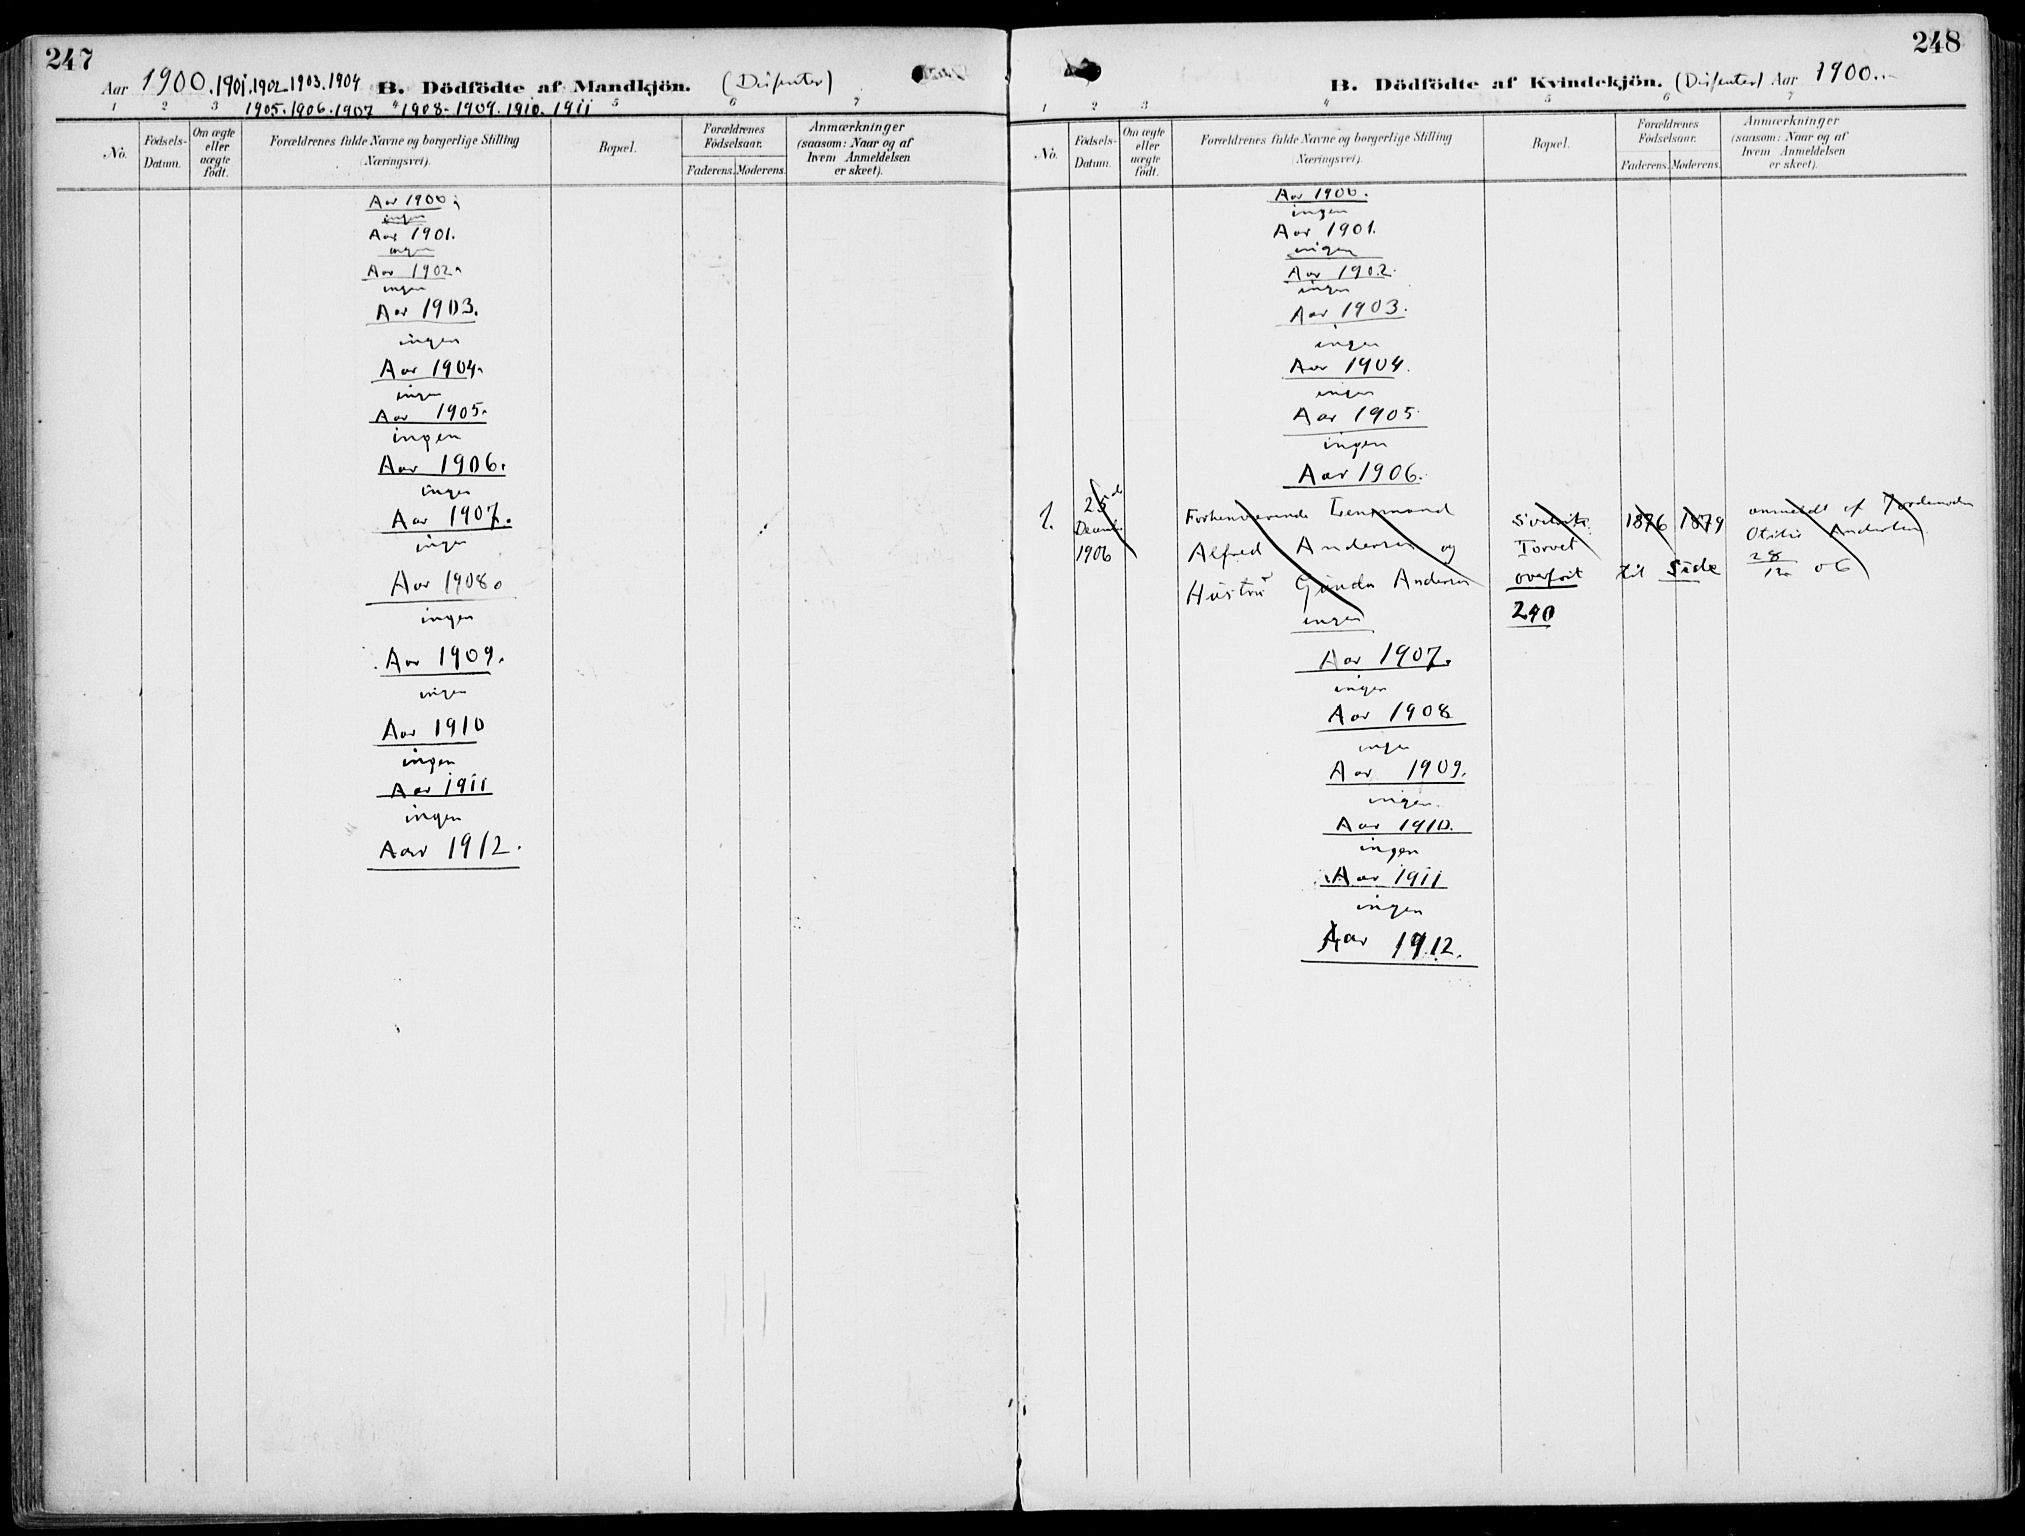 247
Aar 1900. 1901. 1902. 1903. 1904 B. Dödfödte af Mandkjön. (Disenter)
1905. 1906. 1907 " 1908. 1909. 1910. 1911
1 2 3 5 6 7
No.
Födsels-
Datum.
Om ægte
eller
uægte
födt.
Forældrenes fulde Navne og borgerlige Stilling
(Næringsvei).
Bopæl.
Forældrenes
Födselsaar.
Faderens. Moderens.
Anmærkninger
(saasom: Naar og af
hvem Anmeldelsen
er skeet).
Aar 1900.
ingen
Aar 1901.
ingen
Aar 1902.
ingen
Aar 1903.
ingen
Aar 1904.
ingen
Aar 1905.
ingen
Aar 1906.
ingen
Aar 1907.
ingen
Aar 1908.
ingen
Aar 1909.
ingen
Aar 1910
ingen
Aar 1911
ingen
Aar 1912.
248
B. Dödfödte af Kvindekjön. (Disenter) Aar 1900..
1 2 3 4 5 6 7
No.
Födsels-
Datum.
Om ægte
eller
uægte
födt.
Forældrenes fulde Navne og borgerlige Stilling
(Næringsvei).
Bopæl.
Forældrenes
Födselsaar.
Faderens. Moderens.
Anmærkninger
(saasom: Naar og af
hvem Anmeldelsen
er skeet).
Aar 1900.
ingen
Aar 1901.
ingen
Aar 1902.
ingen
Aar 1903.
ingen
Aar 1904.
ingen
Aar 1905
ingen
Aar 1906.
1. 25de Forhenværende Lensmand 1876 1879 anmeldt af Jordmoder
Decemb. Alfred Andersen og Torvet Otilie Andersen
1906 Hustru Gunda Andersen overført til Side 28/12 06
ingen 240
Aar 1907.
ingen
Aar 1908
ingen
Aar 1909.
ingen
Aar 1910.
ingen
Aar 1911
ingen
Aar 1912.